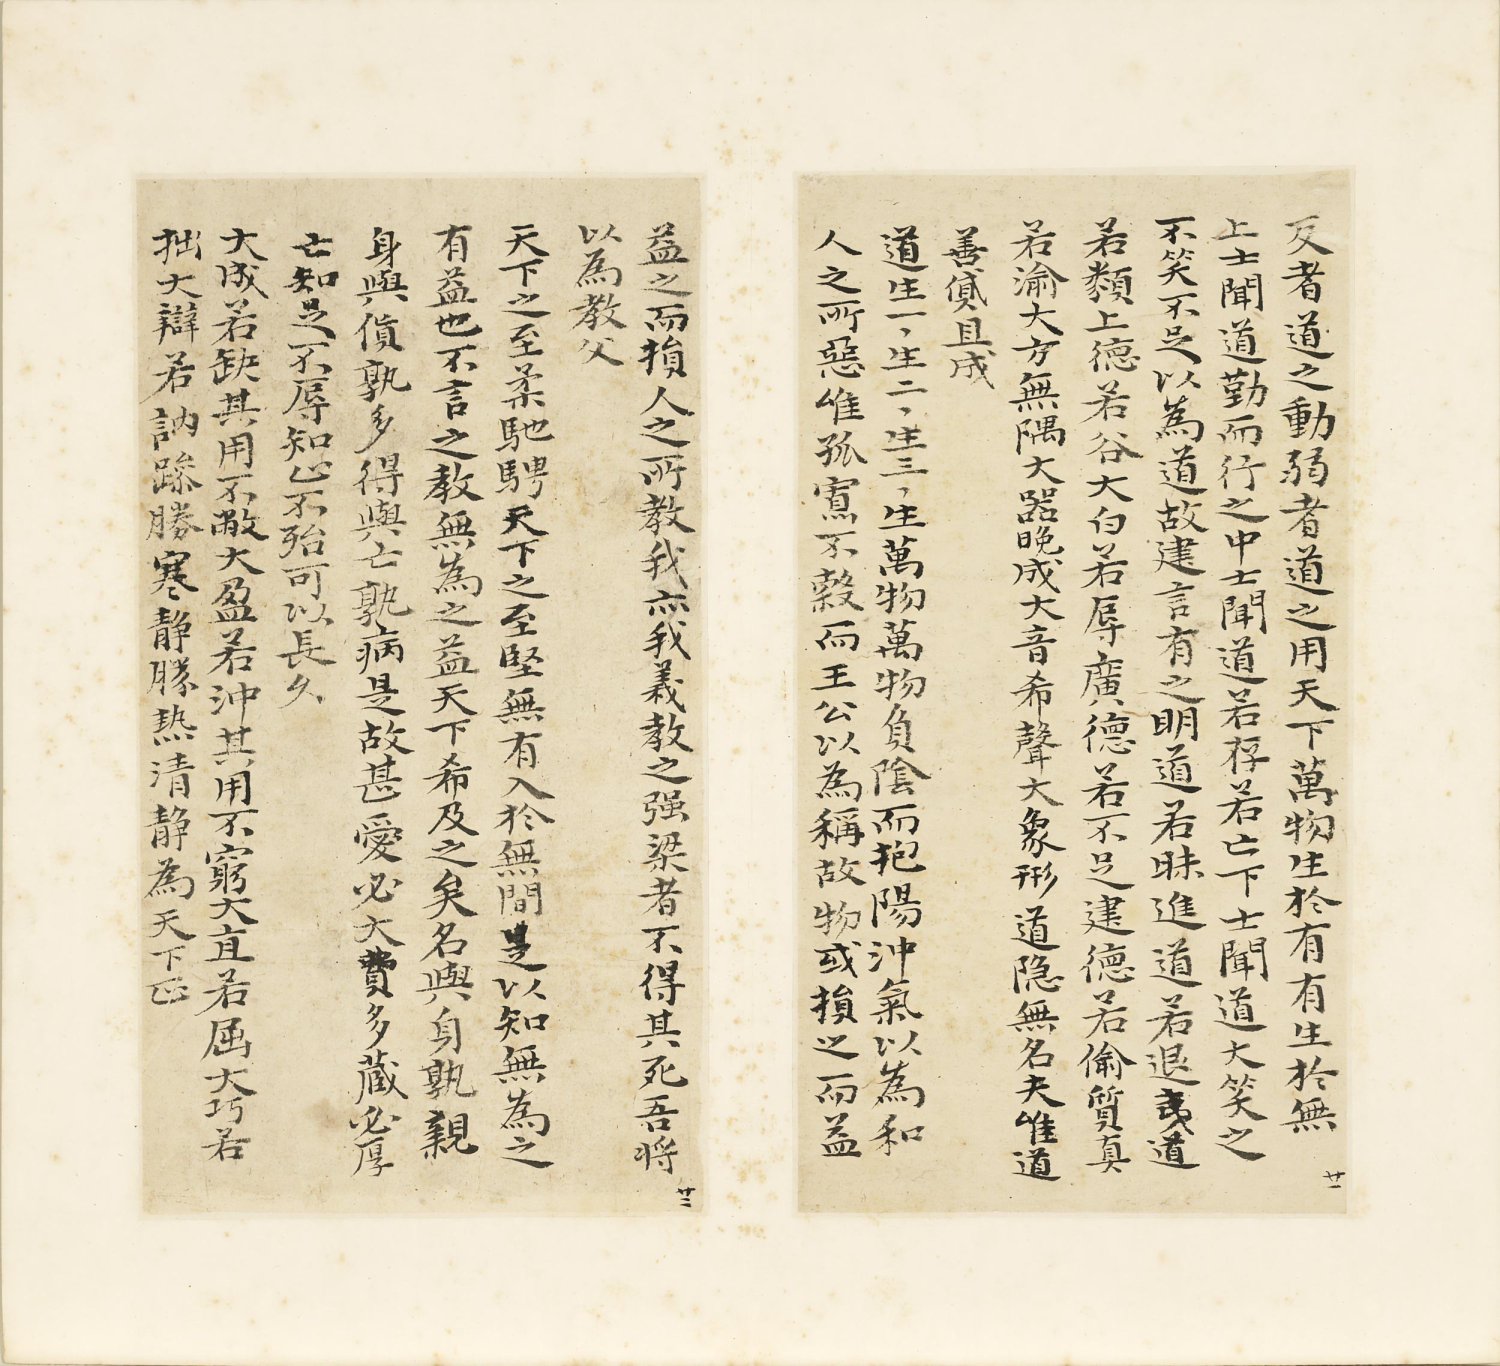 反者道之動弱者道之用天下萬物生於有有生於無
上士聞道勤而行之中士聞道若存若亡下士聞道大笑之
不笑不足以為道故建言有之明道若昧進道若退夷道
若纇上德若谷大白若辱廣德若不足建德若偷質真
若渝大方無隅大器晚成大音希聲大象形道隐無名夫惟道
善貸且成
道生一、生二、生三、生萬物萬物負陰而抱陽沖氣以為和
人之所惡惟孤寡不穀而王公以為稱故物或損之而益
廿一
益之而損人之所教我亦我義教之强梁者不得其死吾將
以為教父
天下之至柔馳騁天下之至堅無有入於無間是以知無為之
有益也不言之教無為之益天下希及之矣名與身孰親
身與貨孰多得與亡孰病是故甚愛必大費多藏必厚
亡知足不辱知止不殆可以長久
大成若缺其用不敝大盈若沖其用不窮大直若屈大巧若
拙大辯若訥躁勝寒静勝热清静為天下正
廿二